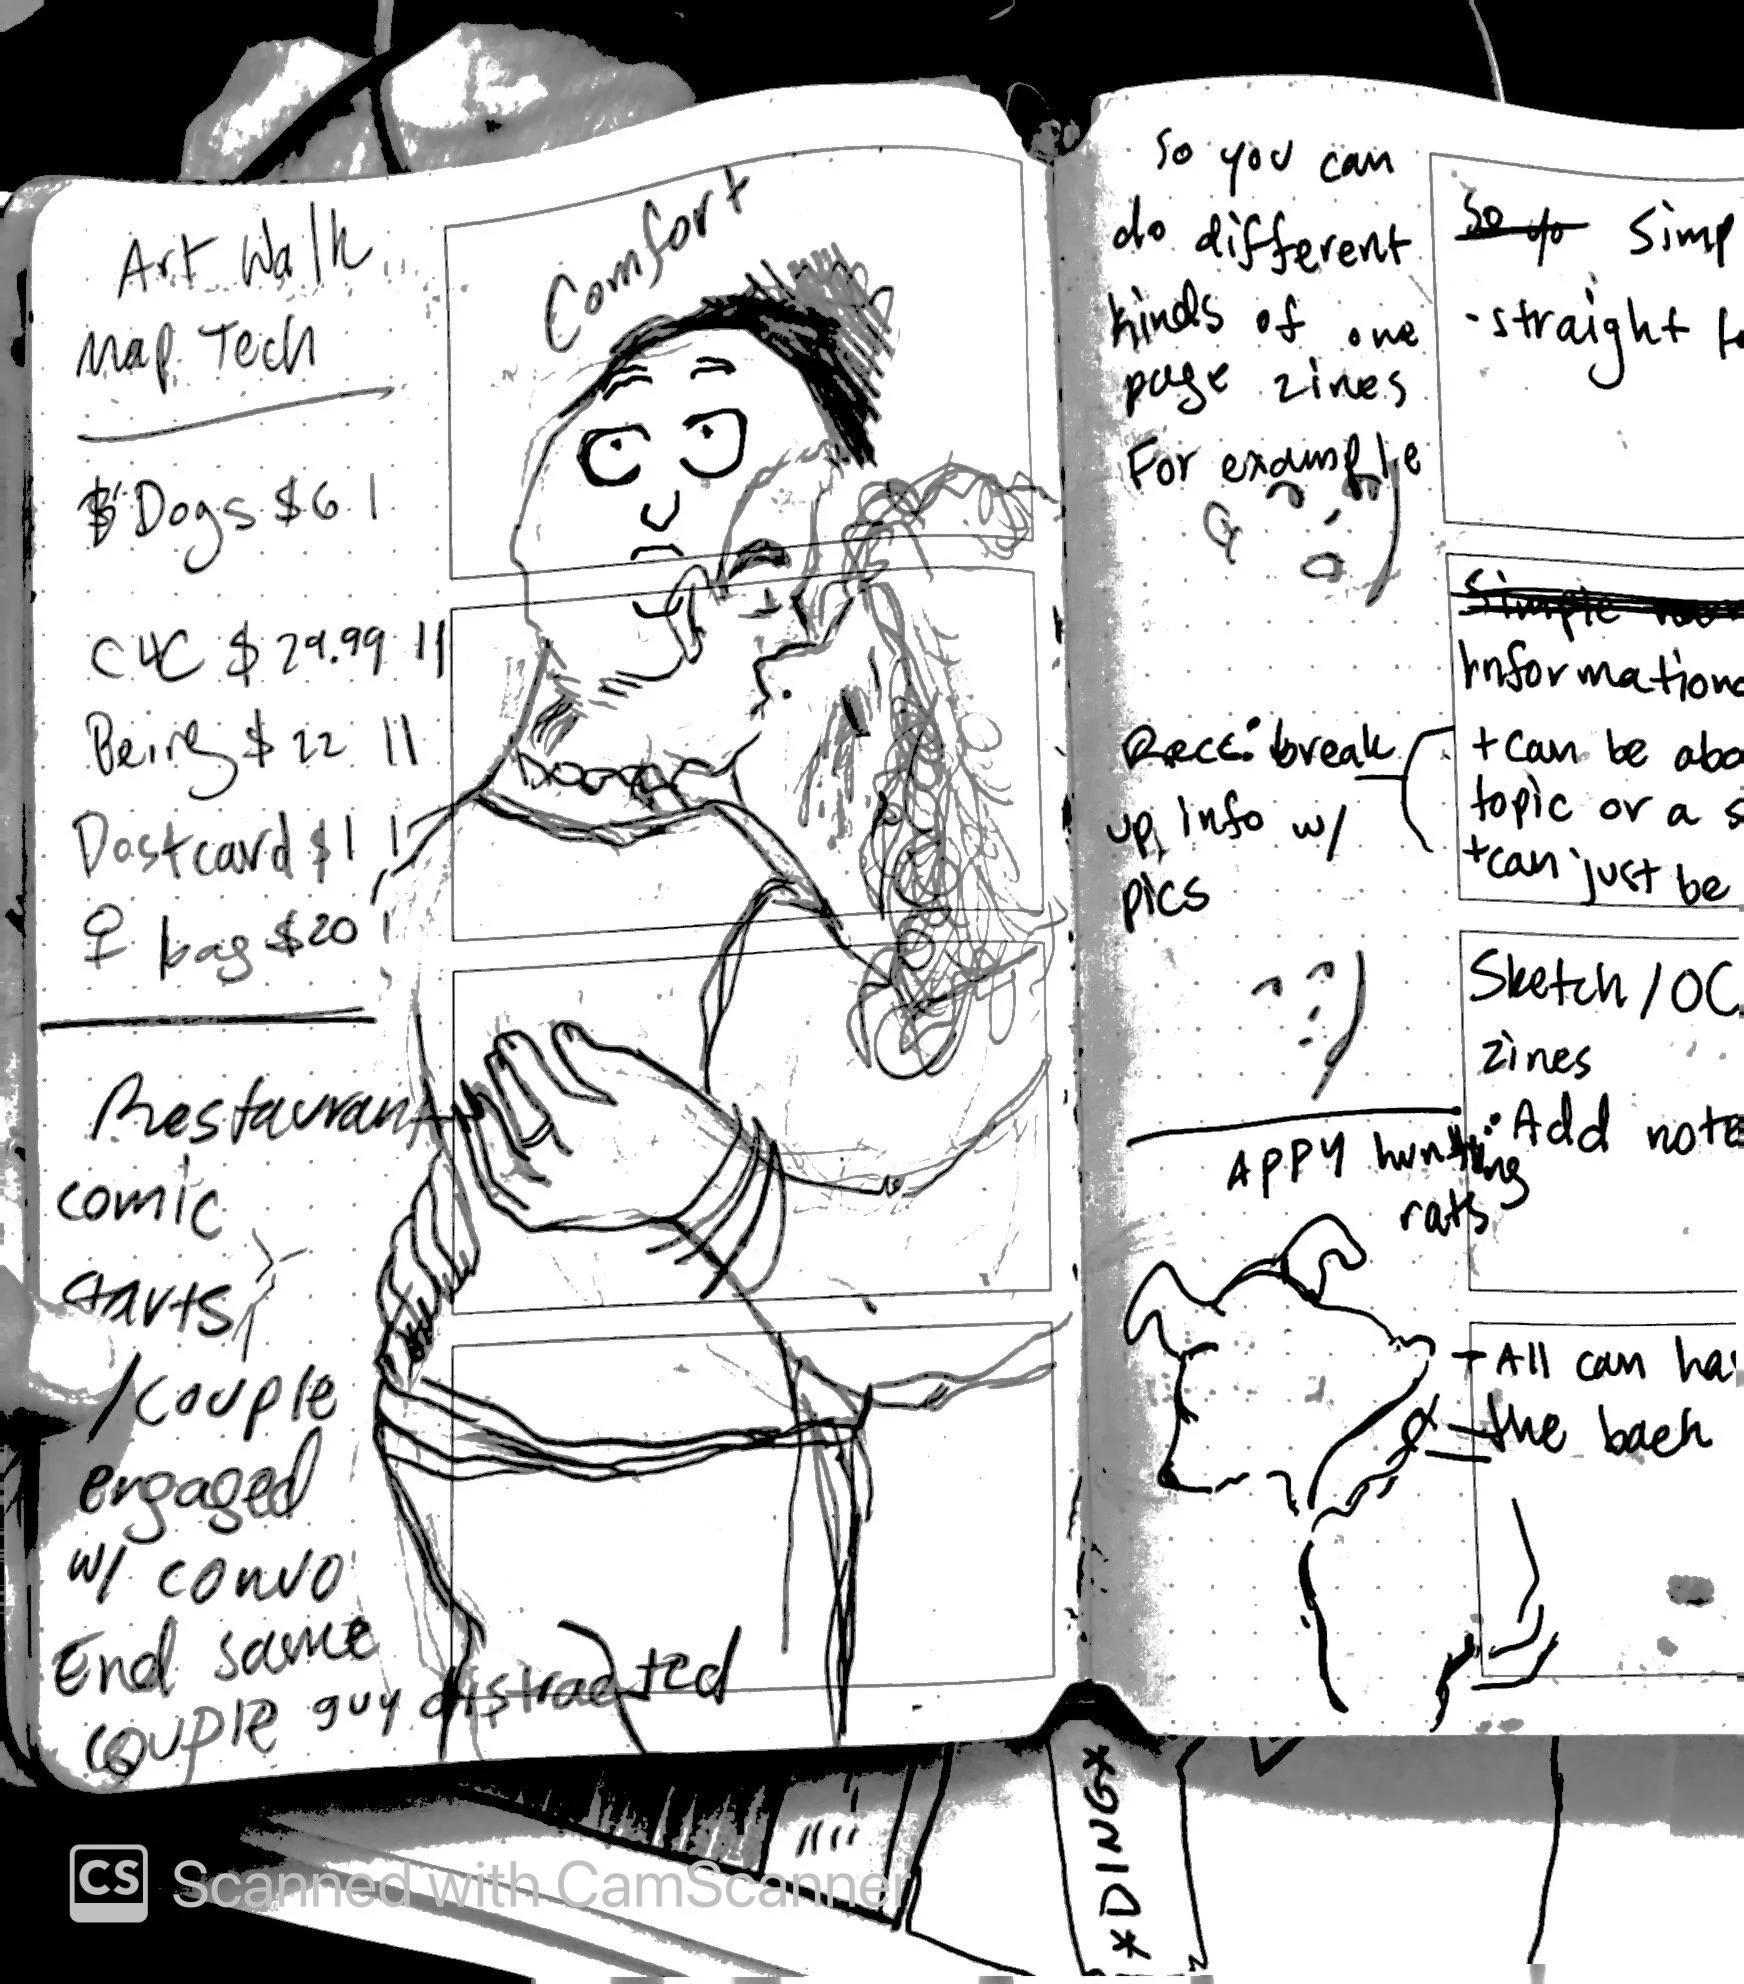 Art Walk
Map Tech
Dogs $6 |
C4C $29.99 ||
Being $22 ||
Postcard $1 |
♀ bag $20 |
Restaurant
comic
starts
/couple
engaged
w/ convo
End same
couple guy distracted
Comfort
So you can
do different
kinds of one
page zines
For example
Recc: break
up info w/
pics
APPY hunting
rats
So Simp
-straight to
Simple
Informationa
+can be abo
topic or a s
+can just be
Sketch/OC
zines
: Add note
+All can ha
the back
*DING*
CS Scanned with CamScanner